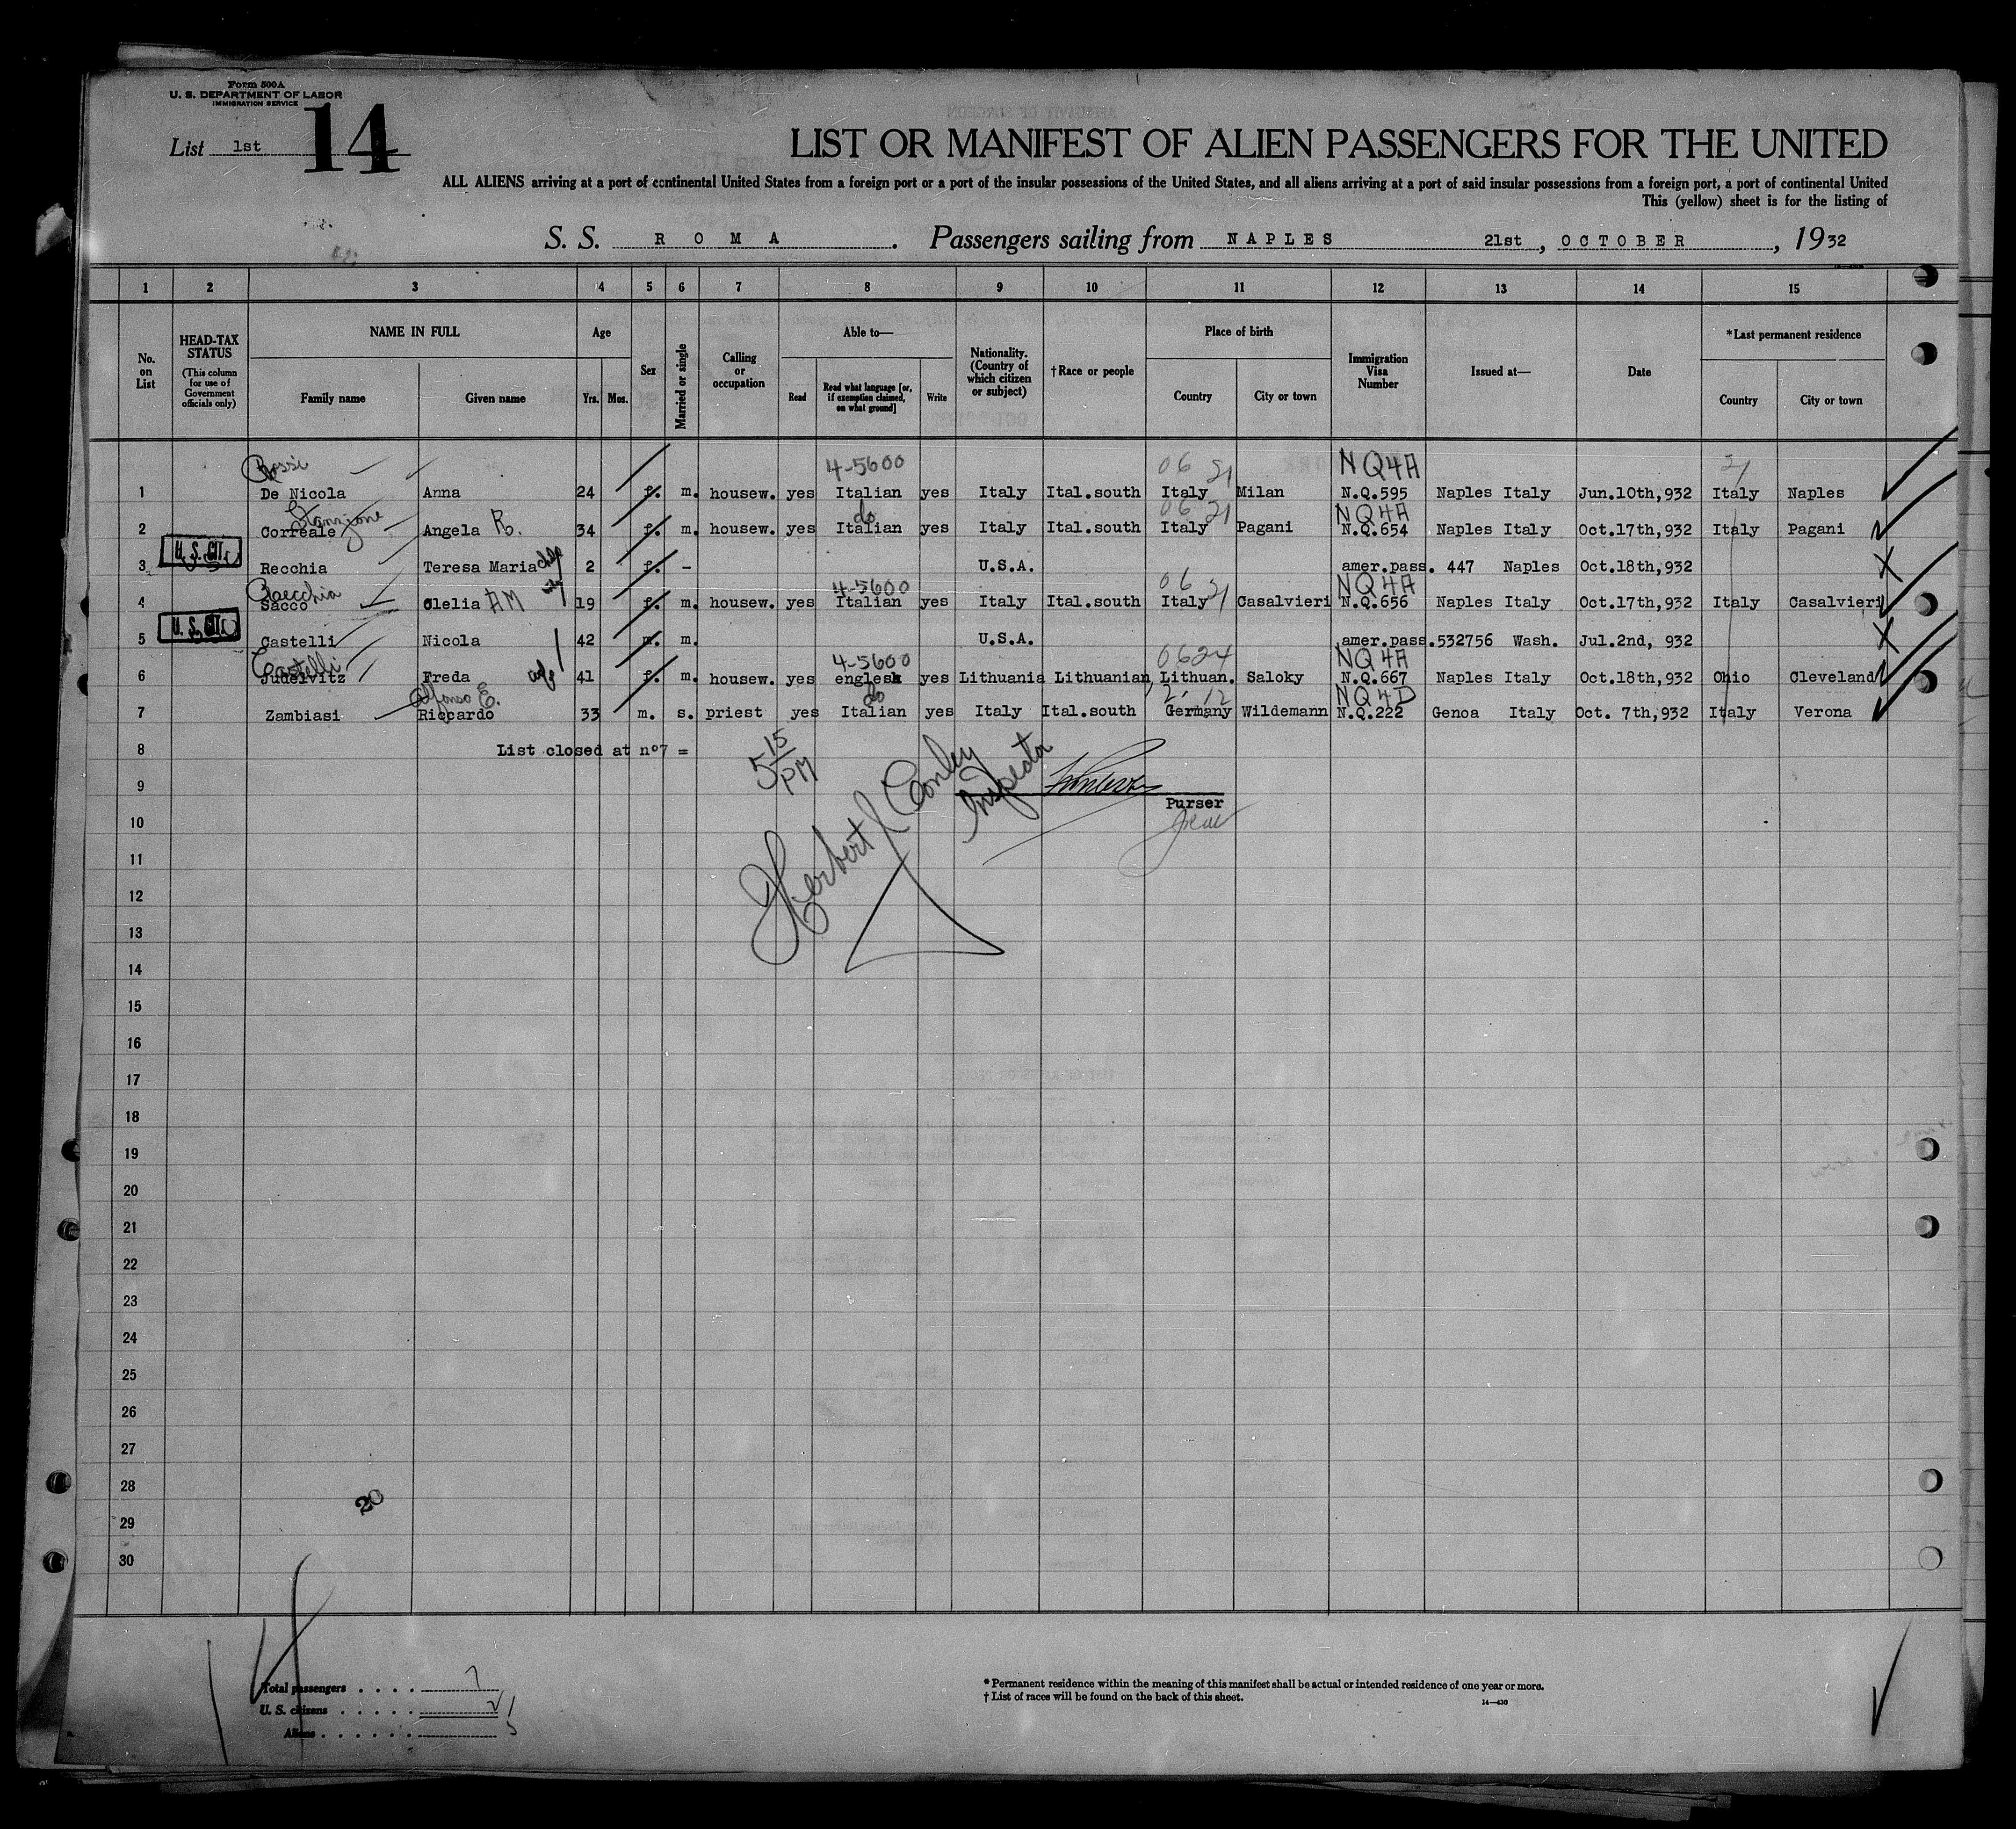 Form 500A
U. S. DEPARTMENT OF LABOR
IMMIGRATION SERVICE
List 1st 14
LIST OR MANIFEST OF ALIEN PASSENGERS FOR THE UNITED
ALL ALIENS arriving at a port of continental United States from a foreign port or a port of the insular possessions of the United States, and all aliens arriving at a port of said insular possessions from a foreign port, a port of continental United
This (yellow) sheet is for the listing of
S. S. R O M A . Passengers sailing from NAPLES 21st , OCTOBER , 1932
1 2 3 4 5 6 7 8 9 10 11 12 13 14 15
No. on List
HEAD-TAX STATUS (This column for use of Government officials only)
NAME IN FULL
Family name Given name
Age
Yrs. Mos.
Sex
Married or single
Calling or occupation
Able to—
Read Read what language [or, if exemption claimed, on what ground] Write
Nationality. (Country of which citizen or subject)
†Race or people
Place of birth
Country City or town
Immigration Visa Number
Issued at—
Date
*Last permanent residence
Country City or town
Rossi 4-5600 06 21 NQ4A 21
1 De Nicola Anna 24 f. m. housew. yes Italian yes Italy Ital.south Italy Milan N.Q.595 Naples Italy Jun.10th,932 Italy Naples
Stanzione do 06 21 NQ4A
2 Correale Angela R. 34 f. m. housew. yes Italian yes Italy Ital.south Italy Pagani N.Q.654 Naples Italy Oct.17th,932 Italy Pagani
U. S. CIT.
3 Recchia Teresa Maria 2 f. - U.S.A. amer.pass. 447 Naples Oct.18th,932
Recchia 4-5600 06 21 NQ4A
4 Sacco Clelia AM 19 f. m. housew. yes Italian yes Italy Ital.south Italy Casalvieri N.Q.656 Naples Italy Oct.17th,932 Italy Casalvieri
U. S. CIT.
5 Castelli Nicola 42 m. m. U.S.A. amer.pass.532756 Wash. Jul.2nd, 932
Castelli 4-5600 0624 NQ4A
6 Judelvitz Freda wife 41 f. m. housew. yes englesh yes Lithuania Lithuanian, Lithuan. Saloky N.Q.667 Naples Italy Oct.18th,932 Ohio Cleveland
Alfonso E. do 2 12 NQ4D
7 Zambiasi Riccardo 33 m. s. priest yes Italian yes Italy Ital.south Germany Wildemann N.Q.222 Genoa Italy Oct. 7th,932 Italy Verona
8 List closed at n°7 =
5 15 PM
Herbert J Conley
Inspector
9
Purser
10
11
12
13
14
15
16
17
18
19
20
21
22
23
24
25
26
27
28
20
29
30
Total passengers . . . . 7
U. S. citizens . . . . . 2
Aliens . . . . . . 5
* Permanent residence within the meaning of this manifest shall be actual or intended residence of one year or more.
† List of races will be found on the back of this sheet.
14—430